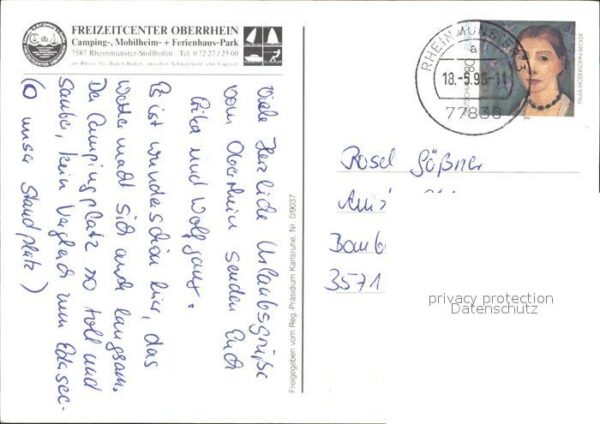 FREIZEITCENTER OBERRHEIN
Camping-, Mobilheim- + Ferienhaus-Park
7587 Rheinmünster-Stollhofen Tel. 0 72 27 / 25 00
am Rhein, bei Baden-Baden, zwischen Schwarzwald und Vogesen
Viele Herzliche Urlaubsgrüße
vom Oberrhein senden Euch
und Wolfgang.
Es ist wunderschön hier, das
Wetter macht sich auch langsam.
Der Campingplatz so toll und
Sauber, kein Vergleich zum Edersee-
(O unser Standplatz)
Freigegeben vom Reg. Präsidium Karlsruhe, Nr. 0/9037
RHEINMÜNSTER 3
a
18.-5.95-11
77836
80
PAULA MODERSOHN-BECKER
Rosel Gößner
3571
privacy protection
Datenschutz